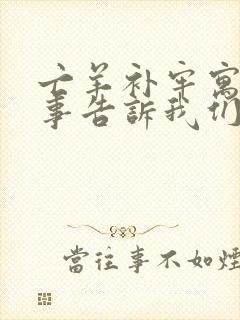 亡羊补牢寓
事告訴我们
當往事不如煙